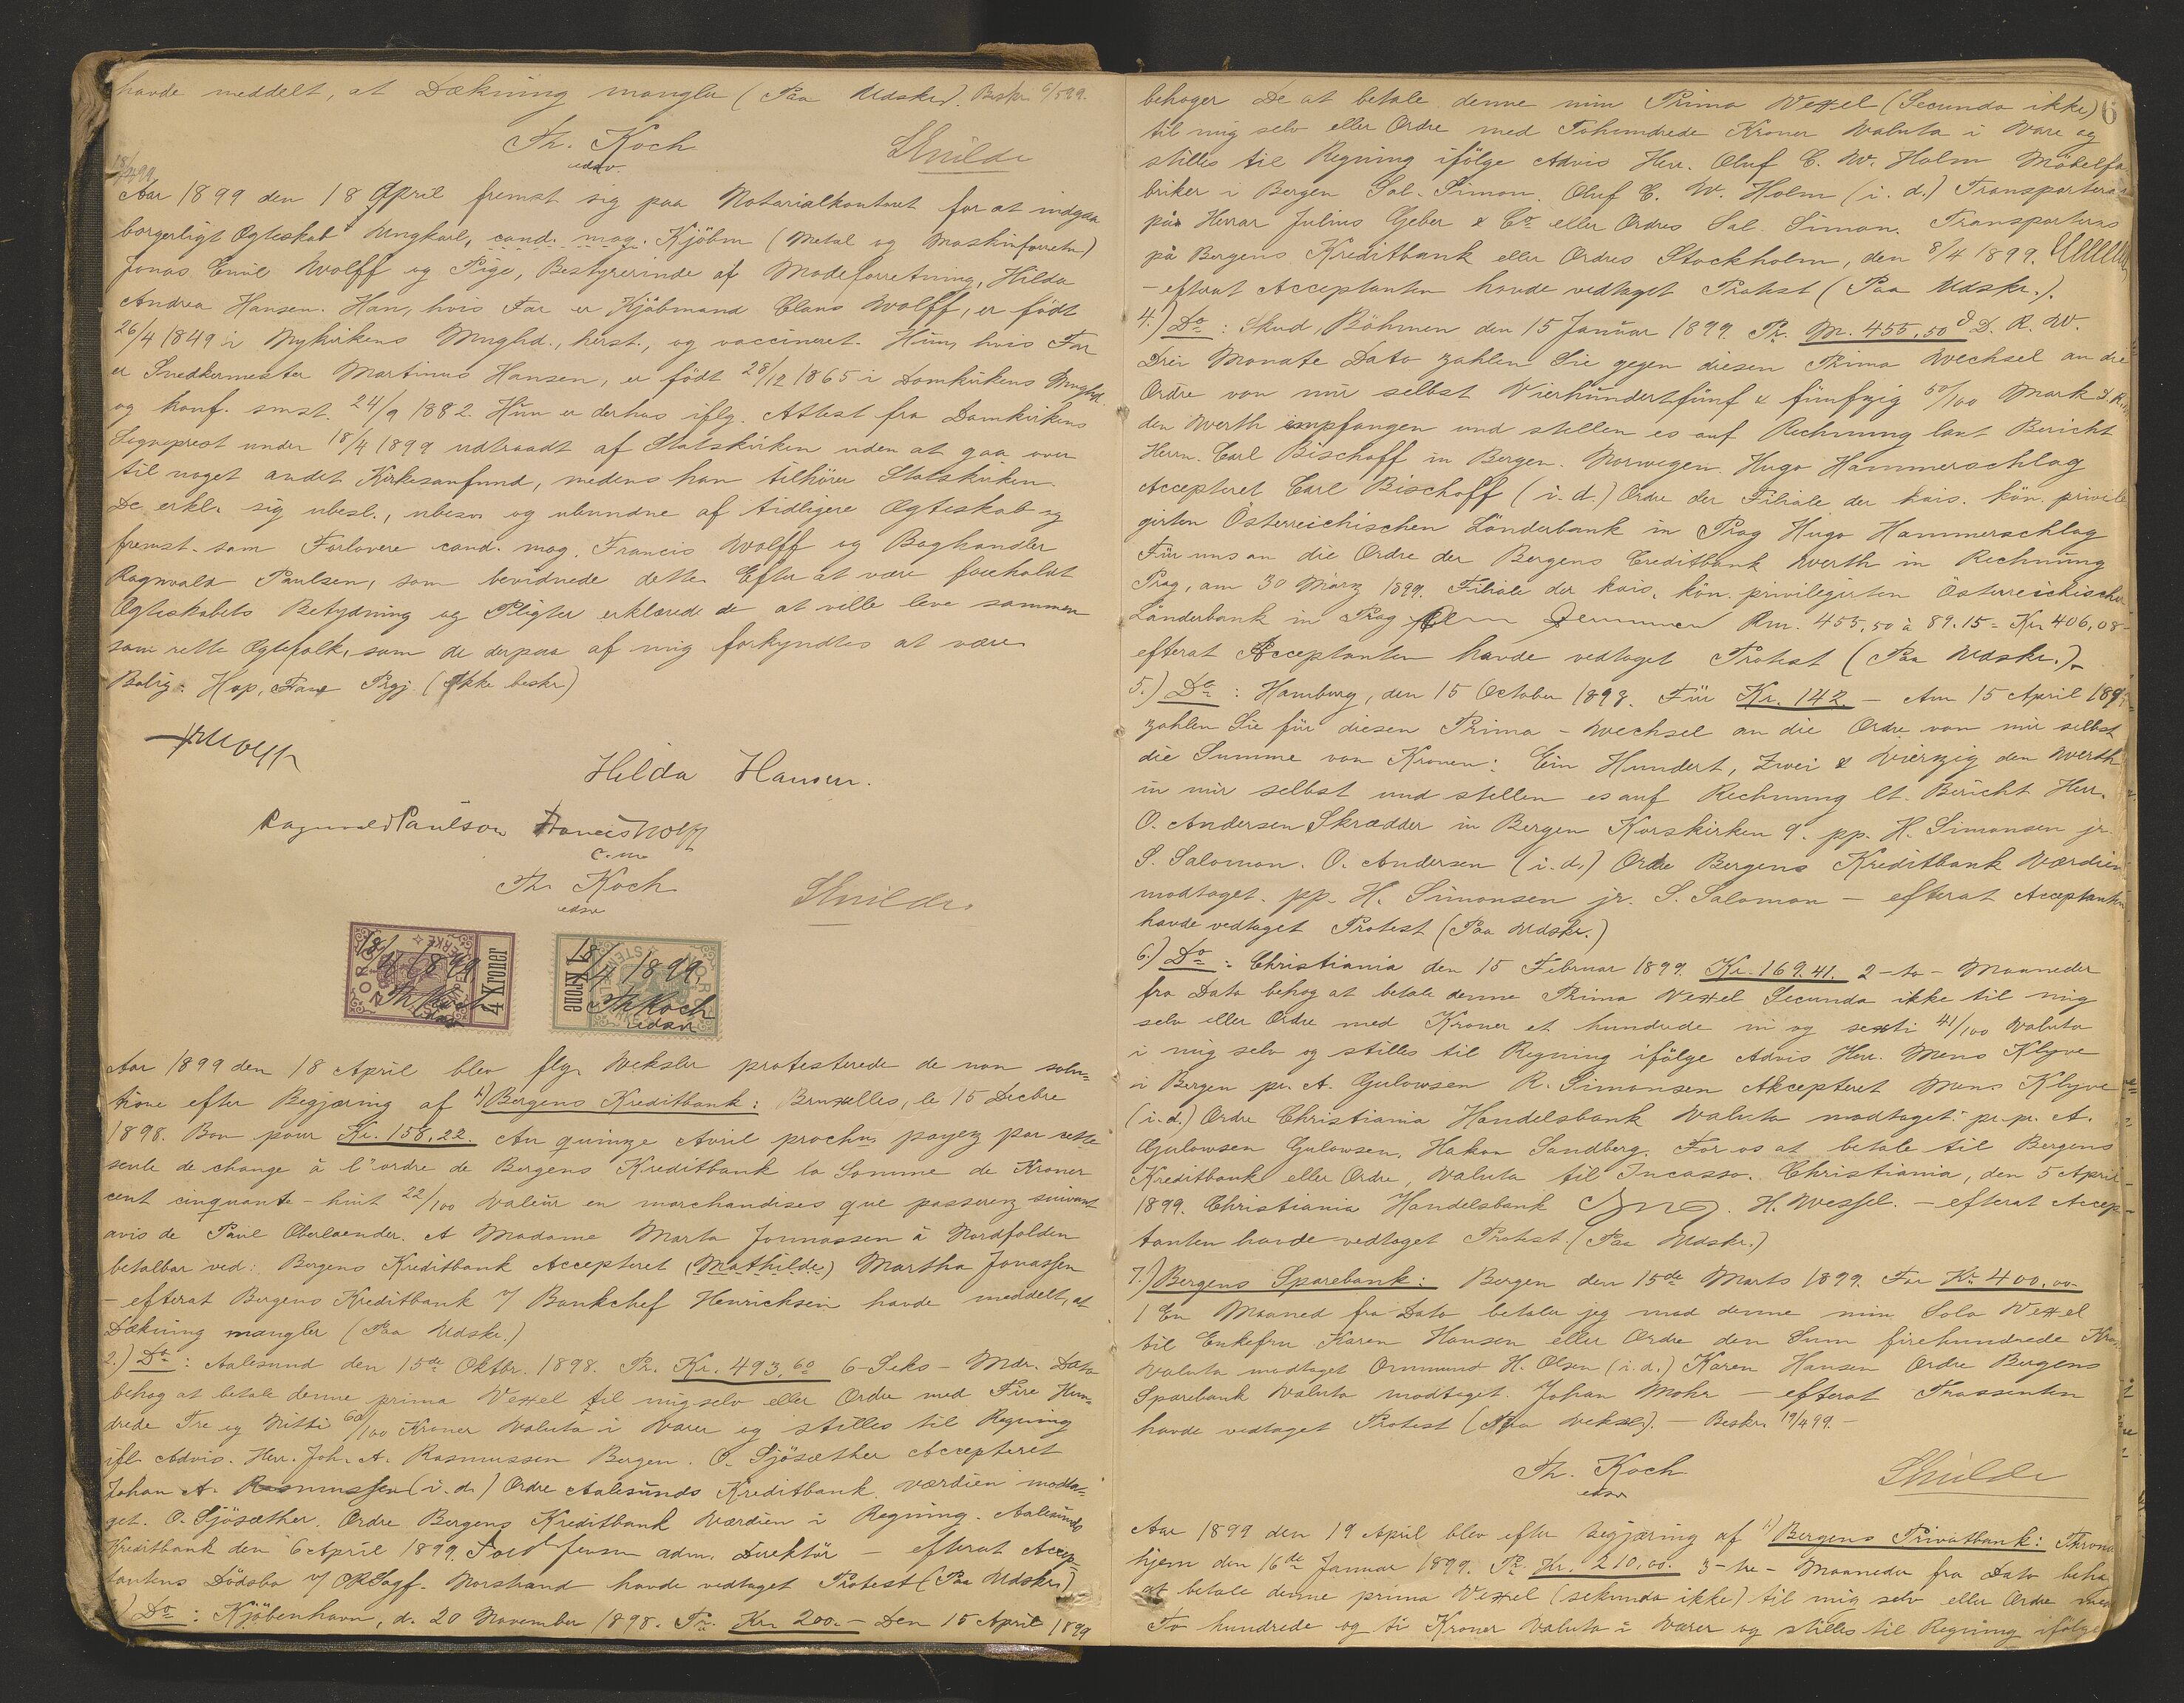 havde meddelt, at Dækning mangler (Paa Udskr). Beskr. 6/5 99.
Th. Koch
edsv.
Skuilde
18/4 99.
Aar 1899 den 18 April fremst sig paa Notarialkontoret for at indgaa
borgerligt Ægteskab Ungkarl, cand. mag. Kjöbm (Metal og Maskinforretn)
Jonas Emil Wolff og Pige, Bestyrerinde af Modeforretning, Hilda
Andrea Hansen. Han, hvis Far er Kjöbmand Claus Wolff, er födt
26/4 1849 i Nykirkens Mnghd., herst., og vaccineret. Hun, hvis Far
er Snedkermester Martinus Hansen, er födt 28/12 1865 i Domkirkens Mnghd.
og konf. smst. 24/9 1882. Hun er derhos iflg. Attest fra Domkirkens
Sogneprest under 18/4 1899 udtraadt af Statskirken uden at gaa over
til noget andet Kirkesamfund, medens han tilhörer Statskirken.
De erkl. sig ubesl., ubesv. og ubundne af tidligere Ægteskab og
fremst. som Forlovere cand. mag. Francis Wolff og Boghandler
Ragnvald Paulsen, som bevidnede dette. Efter at være foreholdt
Ægteskabets Betydning og Pligter erklærede de at ville leve sammen
som rette Ægtefolk, som de derpaa af mig forkyndtes at være.
Bolig: Hop, Fane Prgj. (Ikke beskr)
JEWolff
Hilda Hansen.
Ragnvald Paulson Francis Wolff
c.m.
Th. Koch
edsv
Skuilde.
18/4 1899
Th Koch
edsv
4 Kroner
NORGE
18/4 1899.
Th Koch
edsv
1 Krone
Aar 1899 den 18 April blev flg. Veksler protesterede de non solu-
tione efter Begjæring af 1) Bergens Kreditbank: Bruxelles, le 15 Decbre
1898. Bon pour Kr. 158,22. Au quinze Avril prochn payez par cette
seule de change à l'ordre de Bergens Kreditbank la Somme de Kroner
cent cinquante-huit 22/100 Valeur en marchandises que passerez suivant
avis de Paul Oberlaender. A Madame Marta Jonnassen à Nordfolden
betalbar ved: Bergens Kreditbank Accepteret (Mathilde) Martha Jonassen
— efterat Bergens Kreditbank v/ Bankchef Henrichsen havde meddelt, at
Dækning mangler (Paa Udskr.)
2.) Do: Aalesund den 15de Oktbr. 1898. Pr. Kr. 493,60 6-Seks- Mdr. Dato
behag at betale denne prima Vexel til mig selv eller Ordre med Fire Hun-
drede Tre og Nitti 60/100 Kroner Valuta i Varer og stilles til Regning
ifl. Advis. Herr. Joh. A. Rasmussen Bergen. O. Sjösæther Accepteret
Johan A. Rasmussen (i.d.) Ordre Aalesunds Kreditbank. Værdien modta-
get. O. Sjösæther. Ordre Bergens Kreditbank Værdien i Regning. Aalesunds
Kreditbank den 6 April 1899. adm. Direktör — efterat Accep-
tantens Dödsbo v/ Morstrand havde vedtaget Protest (Paa Udskr.)
) Do: Kjöbenhavn, d. 20 November 1898. Pr. Kr. 200.— Den 15 April 1899
6
behager De at betale denne min Prima Vexel (Secunda ikke)
til mig selv eller Ordre med Tohundrede Kroner Valuta i Vare og
stilles til Regning ifölge Advis Herr. Oluf C. W. Holm Möbelfa
briker i Bergen Sal. Simon. Oluf C. W. Holm (i.d.) Transporteras
på Herrar Julius Geber & Co eller Ordres Sal. Simon. Transporteras
på Bergens Kreditbank eller Ordres Stockholm, den 8/4 1899.
— efterat Acceptanten havde vedtaget Protest (Paa Udskr.).
4.) Do: Skud, Böhmen den 15 Januar 1899. Pr. M. 455,50 D. R. W.
Drei Monate Dato zahlen Sie gegen diesen Prima Wechsel an die
Ordre von mir selbst Vierhundertfünf & fünfzig 50/100 Mark D.R.W.
den Werth empfangen und stellen es auf Rechnung laut Bericht
Herrn. Carl Bischoff in Bergen. Norwegen. Hugo Hammerschlag
Accepteret Carl Bischoff (i.d.) Ordre der Filiale der kais. kön. privile
girten Österreichischen Länderbank in Prag Hugo Hammerschlag
Für uns an die Ordre der Bergens Creditbank Werth in Rechnung
Prag, am 30 März 1899. Filiale der kais. kön. privilegirten Österreichischen
Länderbank in Prag Rm. 455,50 à 89.15 = Kr. 406,08 —
efterat Acceptanten havde vedtaget Protest (Paa Udskr.).
5.) Do: Hamburg, den 15 October 1898. Für Kr. 142 — Am 15 April 1899
zahlen Sie für diesen Prima-Wechsel an die Ordre von mir selbst
die Summe von Kronen: Ein Hundert, Zwei & Vierzig den Werth
in mir selbst und stellen es auf Rechnung lt. Bericht Herr.
O. Andersen Skrædder in Bergen Korskirken 9. pp. H. Simonsen jr.
S. Salomon. O. Andersen (i.d.) Ordre Bergens Kreditbank Værdien
modtaget. pp. H. Simonsen jr. S. Salomon — efterat Acceptanten
havde vedtaget Protest (Paa Udskr.)
6.) Do: Christiania den 15 Februar 1899. Kr. 169.41. 2-to-Maaneder
fra Dato behag at betale denne Prima Vexel Secunda ikke til mig
selv eller Ordre med Kroner et hundrede ni og sexti 41/100 Valuta
i mig selv og stilles til Regning ifölge Advis Herr. Mons Klyve
i Bergen pr. A. Gulowsen R. Simonsen Akcepteret Mons Klyve
(i.d.) Ordre Christiania Handelsbank Valuta modtaget: pr. pr. A.
Gulowsen Gulowsen, Hakon Sandberg. For os at betale til Bergens
Kreditbank eller Ordre, Valuta til Incasso. Christiania, den 5 April
1899. Christiania Handelsbank H. Wessel. — efterat Accep-
tanten havde vedtaget Protest. (Paa Udskr.)
7.) Bergens Sparebank: Bergen den 15de Marts 1899. For Kr 400,00
1 En Maaned fra Dato betaler jeg mod denne min Sola Vexel
til Enkefru Karen Hansen eller Ordre den Sum firehundrede Kro.
Valuta modtaget Ommund H. Olsen (i.d.) Karen Hansen Ordre Bergens
Sparebank Valuta modtaget. Johan Mohr — efterat Trassenten
havde vedtaget Protest (Paa Veksel). — Beskr. 19/4 99. —
Th. Koch
edsv
Skuilde
Aar 1899 den 19 April blev efter Begjæring af 1) Bergens Privatbank: Thrond
hjem den 16de Januar 1899. Pr. Kr. 210,00. 3-tre-Maaneder fra Dato beha
at betale denne prima Vexel (sekunda ikke) til mig selv eller Ordre med
To hundrede og ti Kroner Valuta i Varer og stilles til Regning ifölge